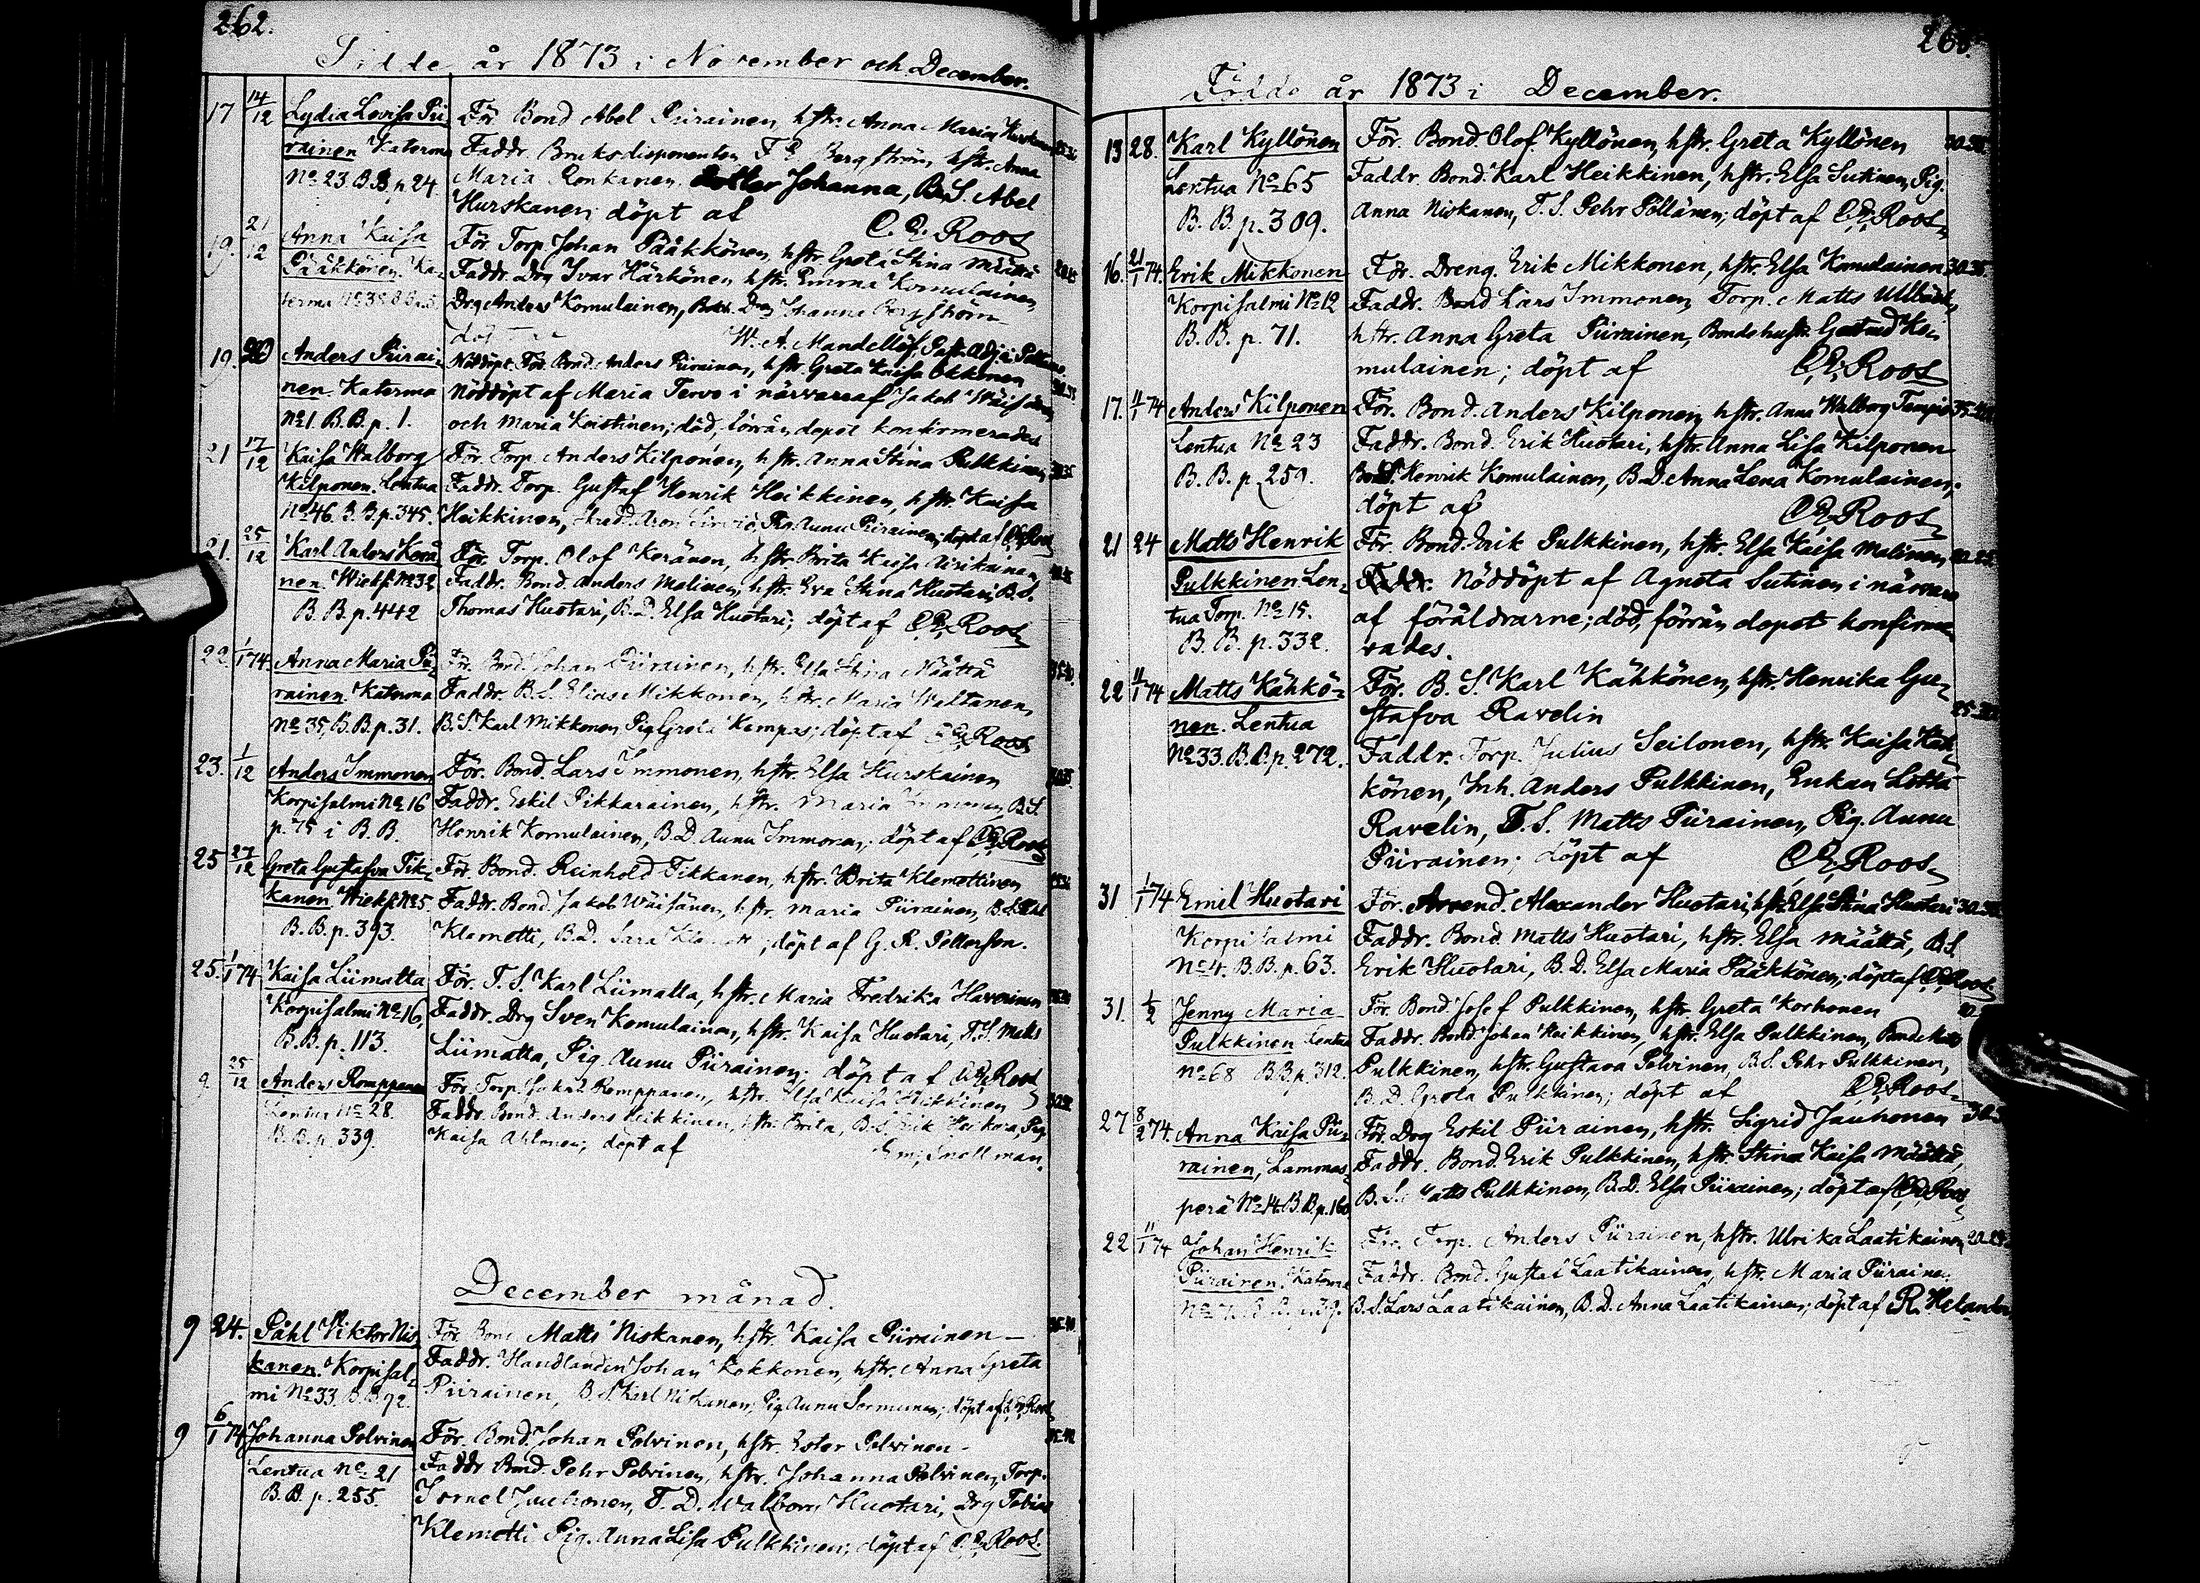 262.
Födde år 1873 i November och December.
17 14/12 Lydia Lovisa Pii- För. Bond Abel Piirainen, hstr. Anna Maria
rainen Katerma Faddr. Bruksdisponenten Bergström, hstr. Anna
No 23 B.B. p. 24 Maria Ronkanen. Johanna, B.S. Abel
Hurskanen; döpt af C. E. Roos
19. 21/12 Anna Kaisa För. Torp. Johan Pääkkönen, hstr. Greta Stina Määttä
Pääkkönen. Ka- Faddr. Drg Ivar Härkönen, hstr. Emma Komulainen
terma Drg Anders Komulainen, Johanna Bergström
W. A. Mandellöf, Past. Adj. i
19. 20 Anders Piirai- Nöddöpt. För. Bond. Anders Piirainen, hstr. Greta Kaisa Okkonen
nen. Katerma Nöddöpt af Maria Tervo i närvaro af Jakob Wäisänen
No 1. B.B. p. 1. och Maria Koistinen; död, förrän dopet konfirmerades
21 17/12 Kaisa Walborg För. Torp. Anders Kilponen, hstr. Anna Stina Pulkkinen
Kilponen. Lentua Faddr. Torp. Gustaf Henrik Heikkinen, hstr. Kaisa
No 46. B.B. p. 345. Heikkinen, Aron Pig. Aunu Piirainen; döpt af C.E. Roos
21. 25/12 Karl Anders Kerä- För. Torp. Olof Keränen, hstr. Brita Kaisa Airikainen,
nen. Wieks. No 32 Faddr. Bond. Anders Malinen, hstr. Eva Stina Huotari, B.S.
B.B. p. 442 Thomas Huotari, B.D. Elsa Huotari; döpt af C.E. Roos
22. 1/1 74. Anna Maria Pii- För. Bond. Johan Piirainen, hstr. Elsa Stina Määttä
rainen. Katerma Faddr. B.S. Elias Mikkonen, hstr. Maria Waltanen,
No 35, B.B. p. 31. B.S. Karl Mikkonen, Pig. Greta Kempas; döpt af C.E. Roos
23. 1/12 Anders Immonen För. Bond. Lars Immonen, hstr. Elsa Hurskainen
Korpisalmi No 16 Faddr. Eskil Pikkarainen, hstr. Maria Immonen, B.S.
p. 75 i B.B. Henrik Komulainen, B.D. Aunu Immonen; döpt af C.E. Roos
25 27/12 Greta Gustafva Tik- För. Bond. Reinhold Tikkanen, hstr. Brita Klemettinen
kanen. Wieks. No 5. Faddr. Bond. Jakob Wäisänen, hstr. Maria Piirainen, B.S.
B.B. p. 393. Klemetti, B.D. Sara ; döpt af G. R. Petterson.
25. 1/1 74 Kaisa Liimatta För. T.S. Karl Liimatta, hstr. Maria Fredrika Haverinen
Korpisalmi No 16, Faddr. Drg Sven Komulainen, hstr. Kaisa Huotari, T.S. Matts
B.B. p. 113. Liimatta, Pig. Aunu Piirainen; döpt af C.E. Roos
9. 25/12 Anders Romppanen För. Torp. Romppanen, hstr. Elsa Kaisa Heikkinen
Lentua No 28. Faddr. Bond. Anders Heikkinen, hstr. Brita, B.S. Erik Pig.
B.B. p. 339. Kaisa Ahtonen; döpt af Snellman.
December månad.
9 24. Påhl Viktor Nis- För. Bond Matts Niskanen, hstr. Kaisa Piirainen
kanen. Korpisal- Faddr. Handlanden Johan Kokkonen, hstr. Anna Greta
mi No 33. B.B. 92. Piirainen, B.S. Karl Niskanen, Pig. Aunu Sormunen; döpt af C.E. Roos
9 6/1 74 Johanna Polvinen För. Bond. Johan Polvinen, hstr. Ester Polvinen
Lentua No 21 Faddr. Bond. Pehr Polvinen, hstr. Johanna Polvinen, Torp.
B.B. p. 255. Jauhonen, T.D. Walborg Huotari, Drg Tobias
Klemetti Pig. Anna Lisa Pulkkinen; döpt af C.E. Roos.
Födde år 1873 i December.
13 28. Karl Kyllönen För. Bond. Olof Kyllönen, hstr. Greta Kyllönen
Lentua No 65 Faddr. Bond. Karl Heikkinen, hstr. Elsa Sutinen, Pig.
B.B. p. 309. Anna Niskanen, T.S. Pehr Pöllänen; döpt af C.E. Roos
16. 21/1 74. Erik Mikkonen För. Dreng. Erik Mikkonen, hstr. Elsa Komulainen 30.35.
Korpisalmi No 12 Faddr. Bond Lars Immonen, Torp. Matts
B.B. p. 71. hstr. Anna Greta Piirainen, Bondehustr. Gertrud Ko-
mulainen; döpt af C.E. Roos
17. 11/1 74 Anders Kilponen För. Bond. Anders Kilponen, hstr. Anna Walborg
Lentua No 23 Faddr. Bond. Erik Huotari, hstr. Anna Lisa Kilponen
B.B. p. 259. Henrik Komulainen, B.D. Anna Lena Komulainen;
döpt af C.E. Roos
21 24 Matts Henrik För. Bond. Erik Pulkkinen, hstr. Elsa Kaisa Malinen, 20.25.
Pulkkinen Len- Faddr. Nöddöpt af Agneta Sutinen i närvaro
tua Torp. No 15. af föräldrarne; död, förrän dopet konfirme-
B.B. p. 332. rades.
22 11/1 74 Matts Kähkö- För. B.S. Karl Kähkönen, hstr. Henrika Gu-
nen. Lentua stafva Ravelin
No 33. B.B. p. 272. Faddr. Torp. Julius Seilonen, hstr. Kaisa Käh-
könen, Inh. Anders Pulkkinen, Enkan Lotta
Ravelin, T.S. Matts Piirainen, Pig. Aunu
Piirainen; döpt af C.E. Roos
31 1/1 74 Emil Huotari För. Arrend. Alexander Huotari, hstr. Elsa Stina Huotari
Korpisalmi Faddr. Bond. Matts Huotari, hstr. Elsa Määttä, B.S.
No 4. B.B. p. 63. Erik Huotari, B.D. Elsa Maria Pääkkönen; döpt af C.E. Roos
31. 1/2 Jenny Maria För. Bond. Josef Pulkkinen, hstr. Greta Korhonen
Pulkkinen Lentua Faddr. Bond. Johan Heikkinen, hstr. Elsa Pulkkinen,
No 68 B.B. p. 312. Pulkkinen, hstr. Gustava Polvinen, B.S. Pehr Pulkkinen,
B.D. Greta Pulkkinen; döpt af C.E. Roos
27 8/2 74. Anna Kaisa Pii- För. Drg Eskil Piirainen, hstr. Sigrid Jauhonen
rainen, Lammas- Faddr. Bond. Erik Pulkkinen, hstr. Stina Kaisa Määttä,
perä No 14. B.B. p. 160 B.S. Matts Pulkkinen, B.D. Elsa Piirainen; döpt af C.E. Roos
22 11/1 74 Johan Henrik För. Torp. Anders Piirainen, hstr. Ulrika Laatikainen
Piirainen. Katerma Faddr. Bond. Gustaf Laatikainen, hstr. Maria Piirainen
B.S. Lars Laatikainen, B.D. Anna Laatikainen; döpt af R. Helander